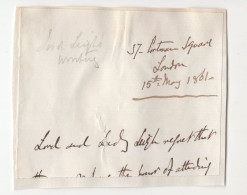 Lord Leigh
37 Portman Square
London
15th May 1861
Lord and Lady Leigh regret that
the honor of attending